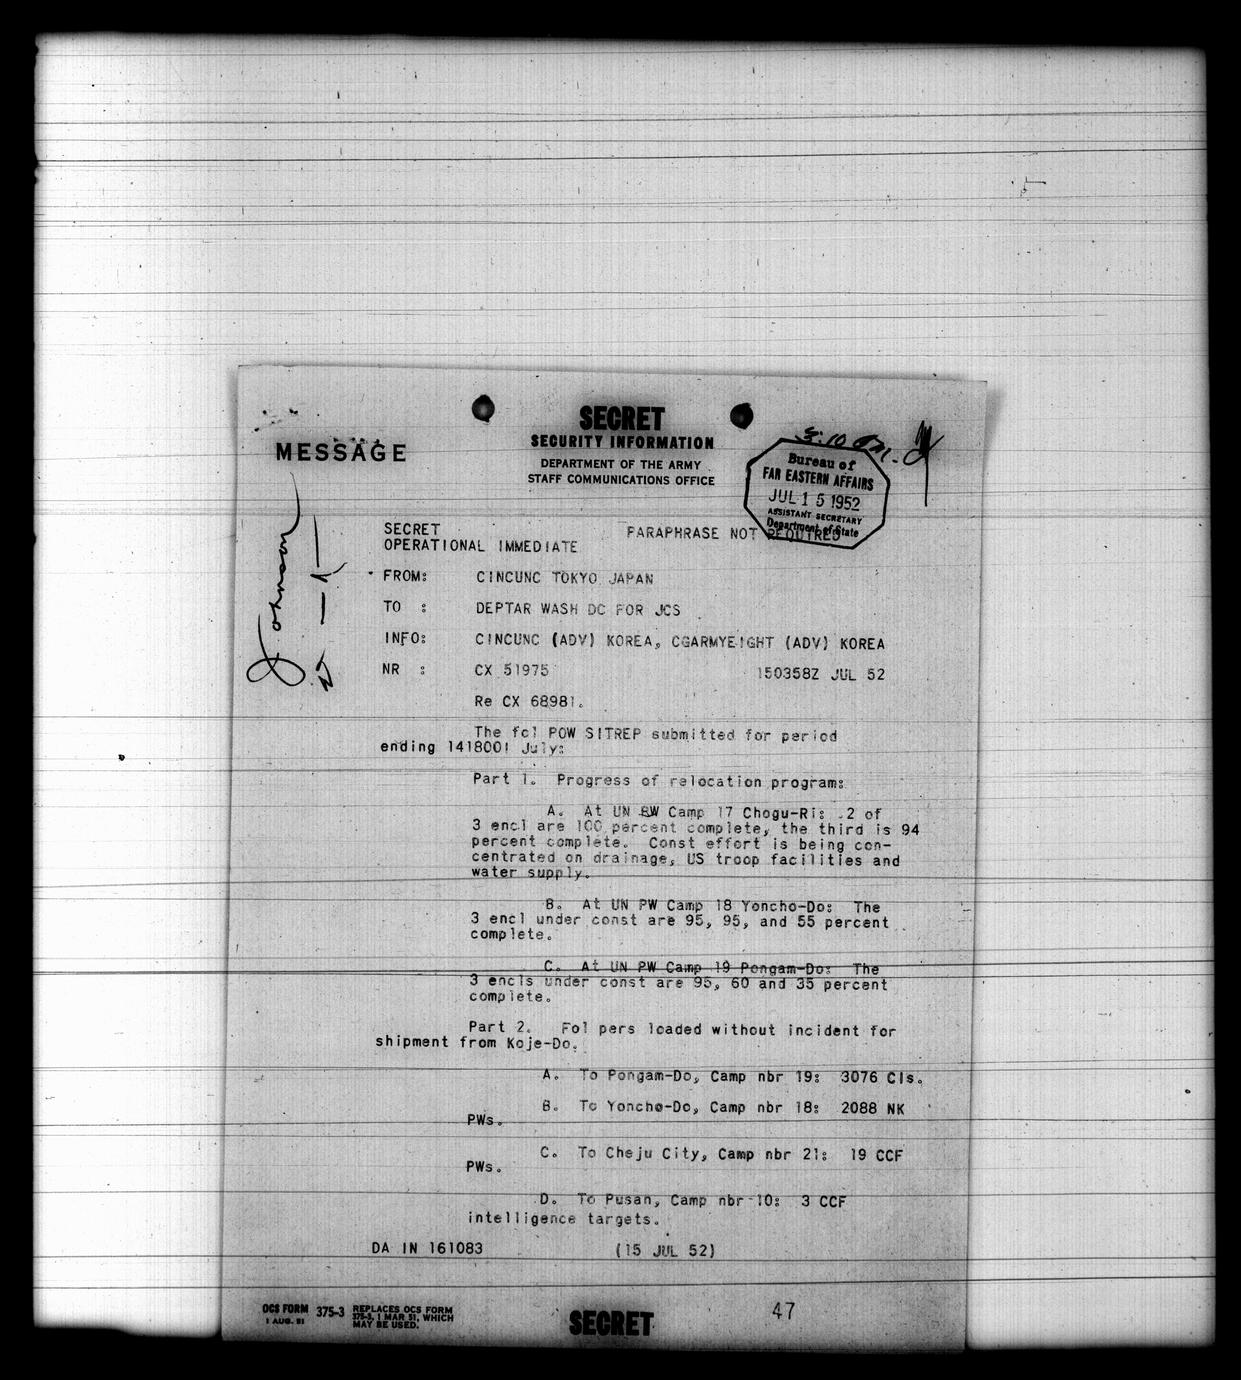 SECRET
SECURITY INFORMATION
MESSAGE
DEPARTMENT OF THE ARMY
STAFF COMMUNICATIONS OFFICE
Bureau of
FAR EASTERN AFFAIRS
JUL 15 1952
ASSISTANT SECRETARY
Department of State
Johnson
SECRET PARAPHRASE NOT REQUIRED
OPERATIONAL IMMEDIATE
FROM: CINCUNC TOKYO JAPAN
TO : DEPTAR WASH DC FOR JCS
INFO: CINCUNC (ADV) KOREA, CGARMYEIGHT (ADV) KOREA
NR : CX 51975 150358Z JUL 52
Re CX 68981.
The fol POW SITREP submitted for period
ending 141800I July:
Part 1. Progress of relocation program:
A. At UN PW Camp 17 Chogu-Ri: 2 of
3 encl are 100 percent complete, the third is 94
percent complete. Const effort is being con-
centrated on drainage, US troop facilities and
water supply.
B. At UN PW Camp 18 Yoncho-Do: The
3 encl under const are 95, 95, and 55 percent
complete.
C. At UN PW Camp 19 Pongam-Do: The
3 encls under const are 95, 60 and 35 percent
complete.
Part 2. Fol pers loaded without incident for
shipment from Koje-Do.
A. To Pongam-Do, Camp nbr 19: 3076 CIs.
B. To Yoncho-Do, Camp nbr 18: 2088 NK
PWs.
C. To Cheju City, Camp nbr 21: 19 CCF
PWs.
D. To Pusan, Camp nbr 10: 3 CCF
intelligence targets.
DA IN 161083 (15 JUL 52)
OCS FORM 375-3 REPLACES OCS FORM
1 AUG. 51 375-3, 1 MAR 51, WHICH
MAY BE USED.
SECRET
47